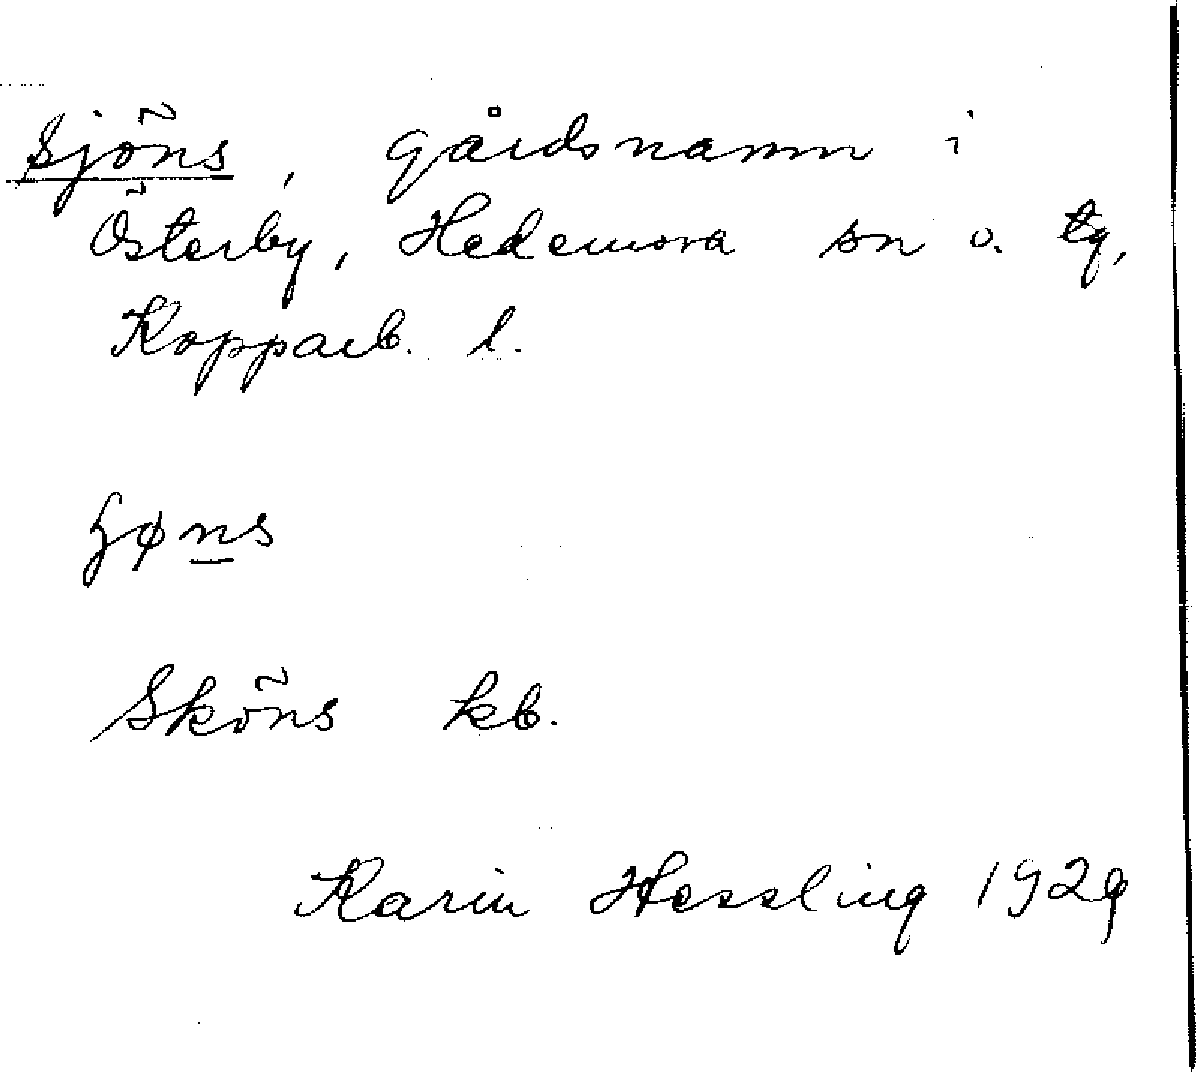 Sjöns, gårdsnamn i
Österby, Hedemora sn o. tg,
Kopparb. l.
Sköns kb.
Karin Hessling 1929